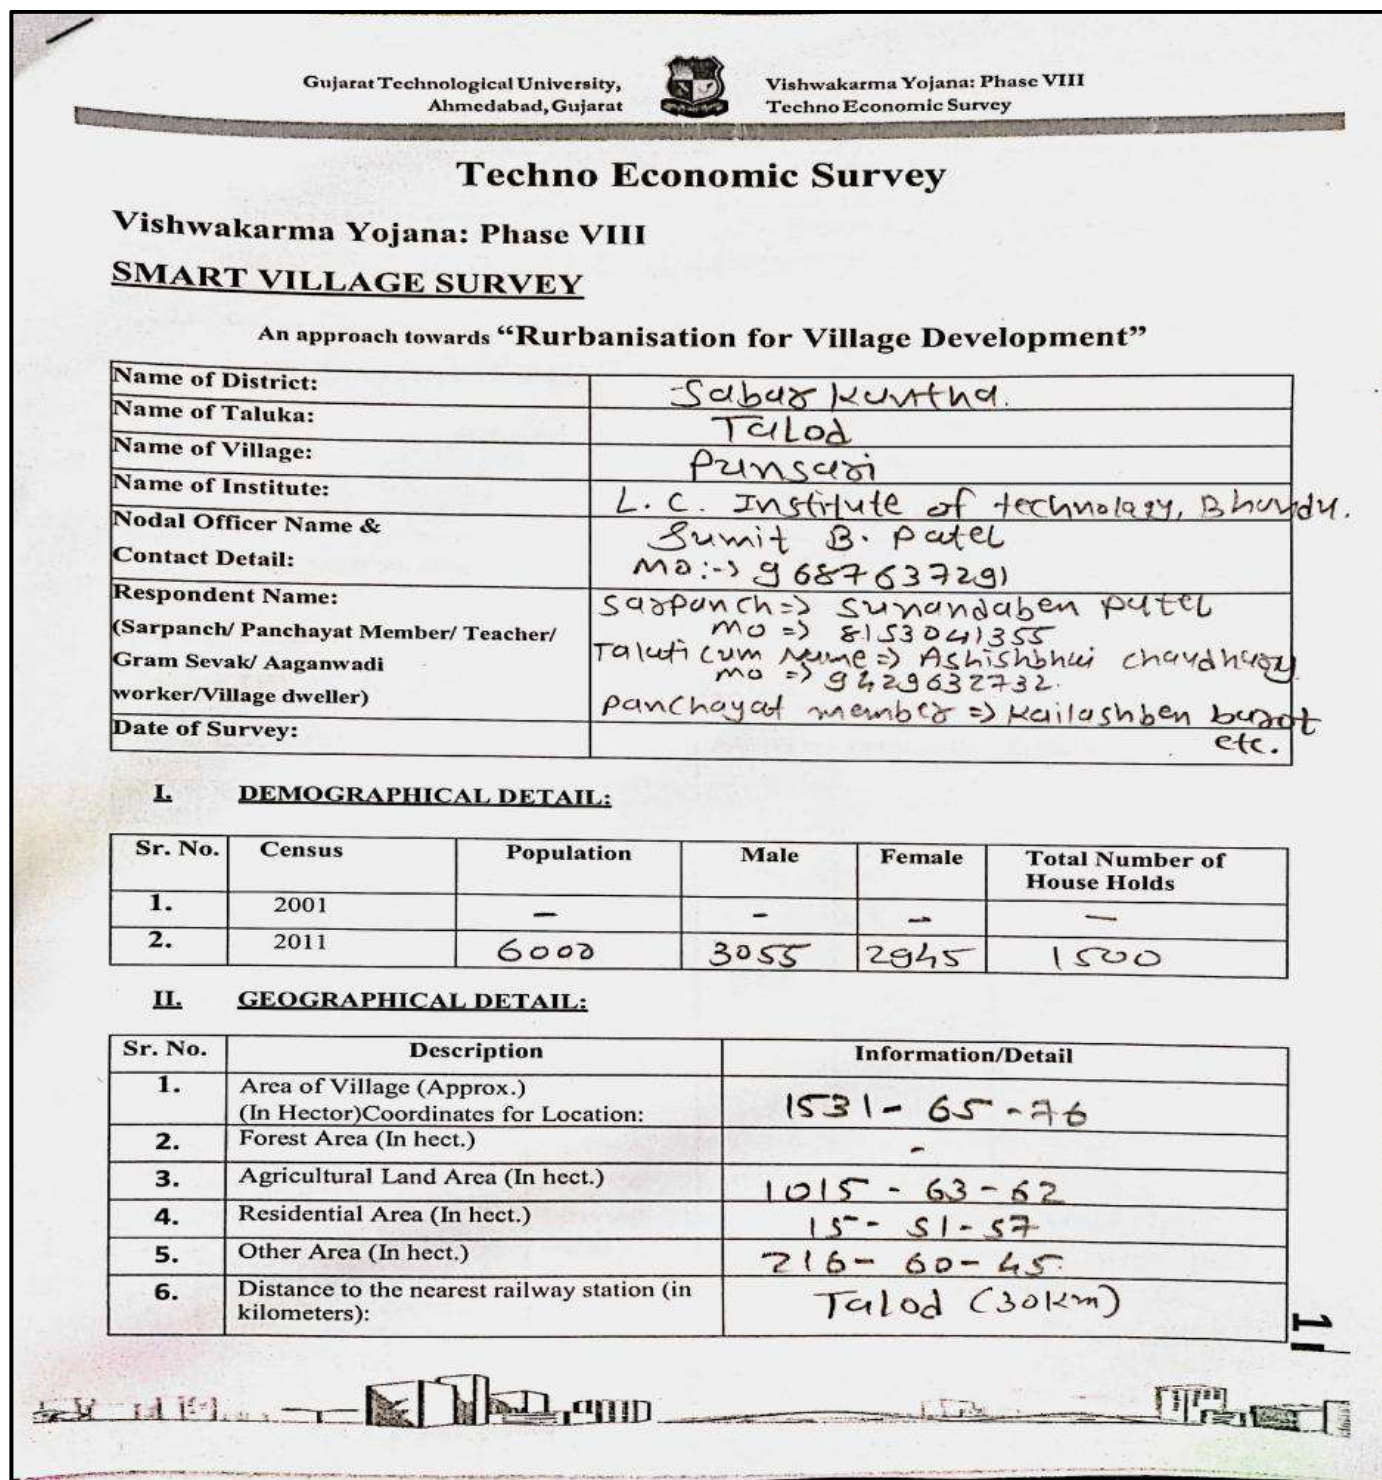 Gujarat Technological University,
Ahmedabad, Gujarat
Vishwakarma Yojana: Phase VIII
Techno Economic Survey
Techno Economic Survey
Vishwakarma Yojana: Phase VIII
SMART VILLAGE SURVEY
An approach towards "Rurbanisation for Village Development"
Name of District: Sabar Kantha.
Name of Taluka: Talod
Name of Village: Punsari
Name of Institute: L. C. Institute of technology, Bhandu.
Nodal Officer Name & Sumit B. Patel
Contact Detail: Mo:-> 9687637291
Respondent Name: Sarpanch=> Sunandaben Patel
(Sarpanch/ Panchayat Member/ Teacher/ mo => 8153041355
Gram Sevak/ Aaganwadi Talati cum Name => Ashishbhai chaudhary
mo => 9429632732.
worker/Village dweller) Panchayat member => Kailashben barot
Date of Survey: etc.
I. DEMOGRAPHICAL DETAIL:
Sr. No. Census Population Male Female Total Number of
House Holds
1. 2001 - - - -
2. 2011 6000 3055 2945 1500
II. GEOGRAPHICAL DETAIL:
Sr. No. Description Information/Detail
1. Area of Village (Approx.)
(In Hector)Coordinates for Location: 1531-65-76
2. Forest Area (In hect.) -
3. Agricultural Land Area (In hect.) 1015-63-62
4. Residential Area (In hect.) 15-51-57
5. Other Area (In hect.) 216-60-45
6. Distance to the nearest railway station (in Talod (30km)
kilometers):
1